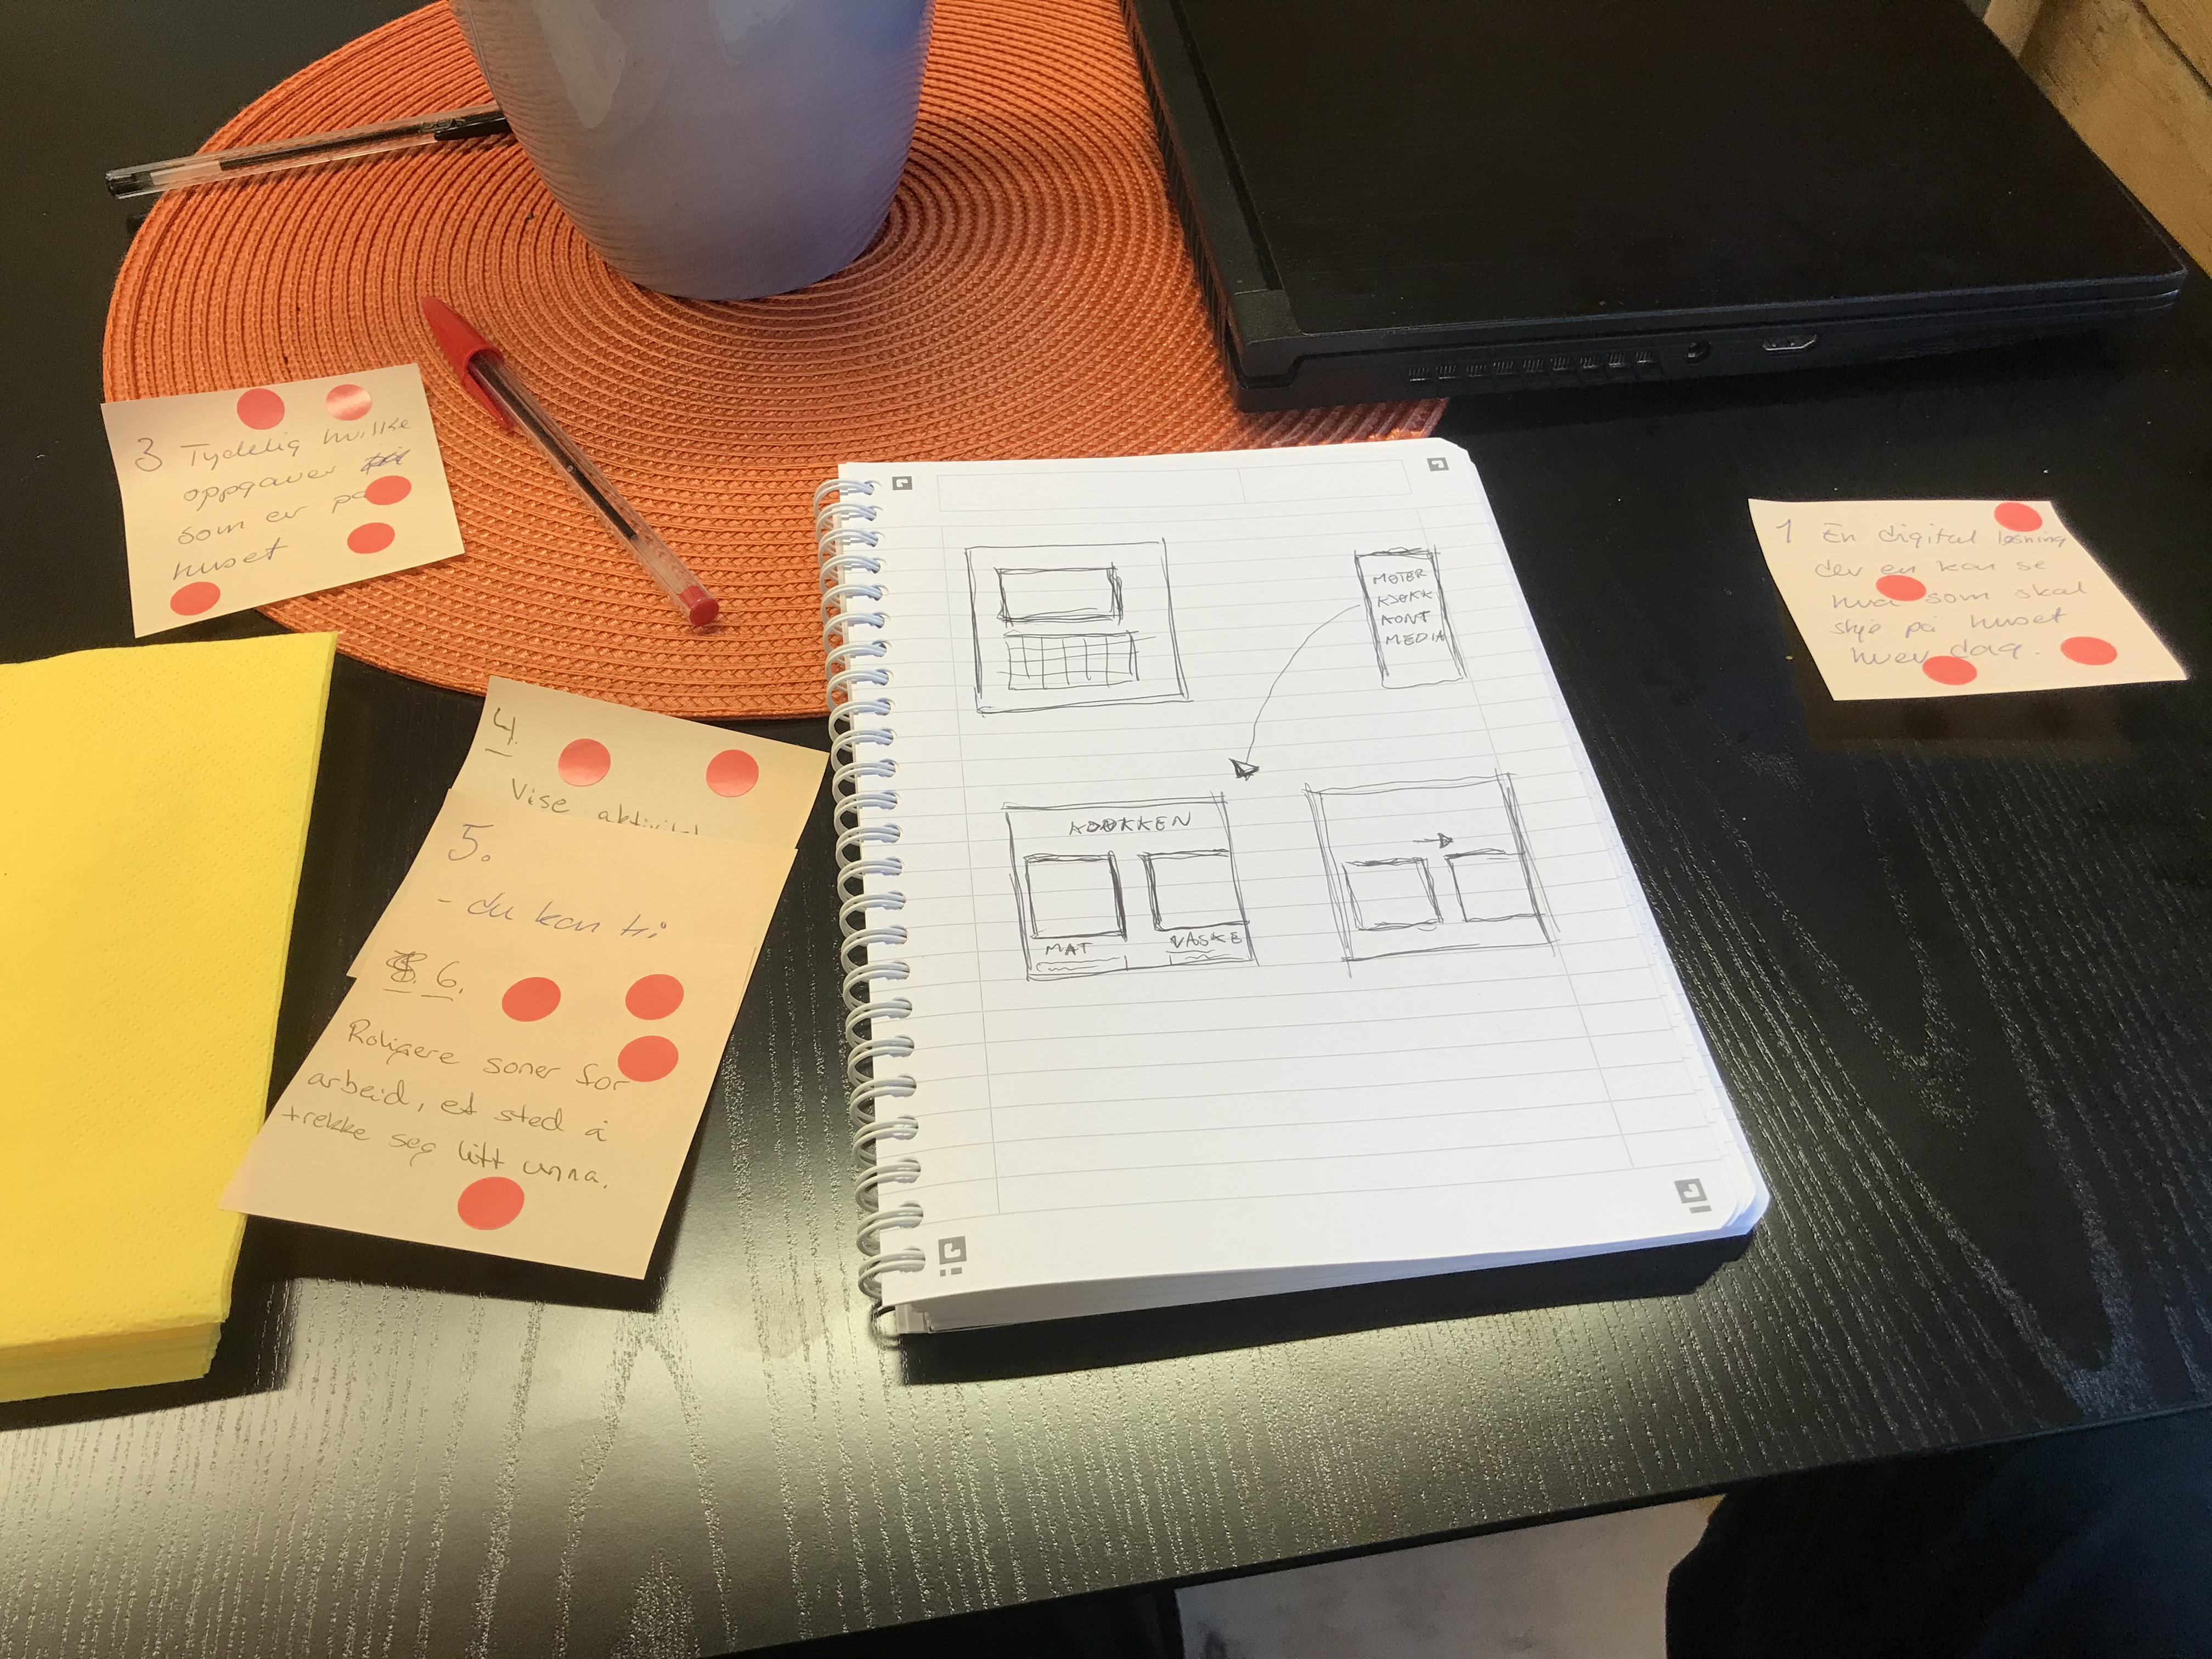 3 Tydelig hvilke
oppgaver
som er på
huset
4.
Vise aktivitet
5.
- du kan
6.
Roligere soner for
arbeid, et sted å
trekke seg litt unna.
MØTER
KJØKK
KONT
MEDIA
KJØKKEN
MAT
VASKE
1 En digital løsning
der en kan se
hva som skal
skje på huset
hver dag.